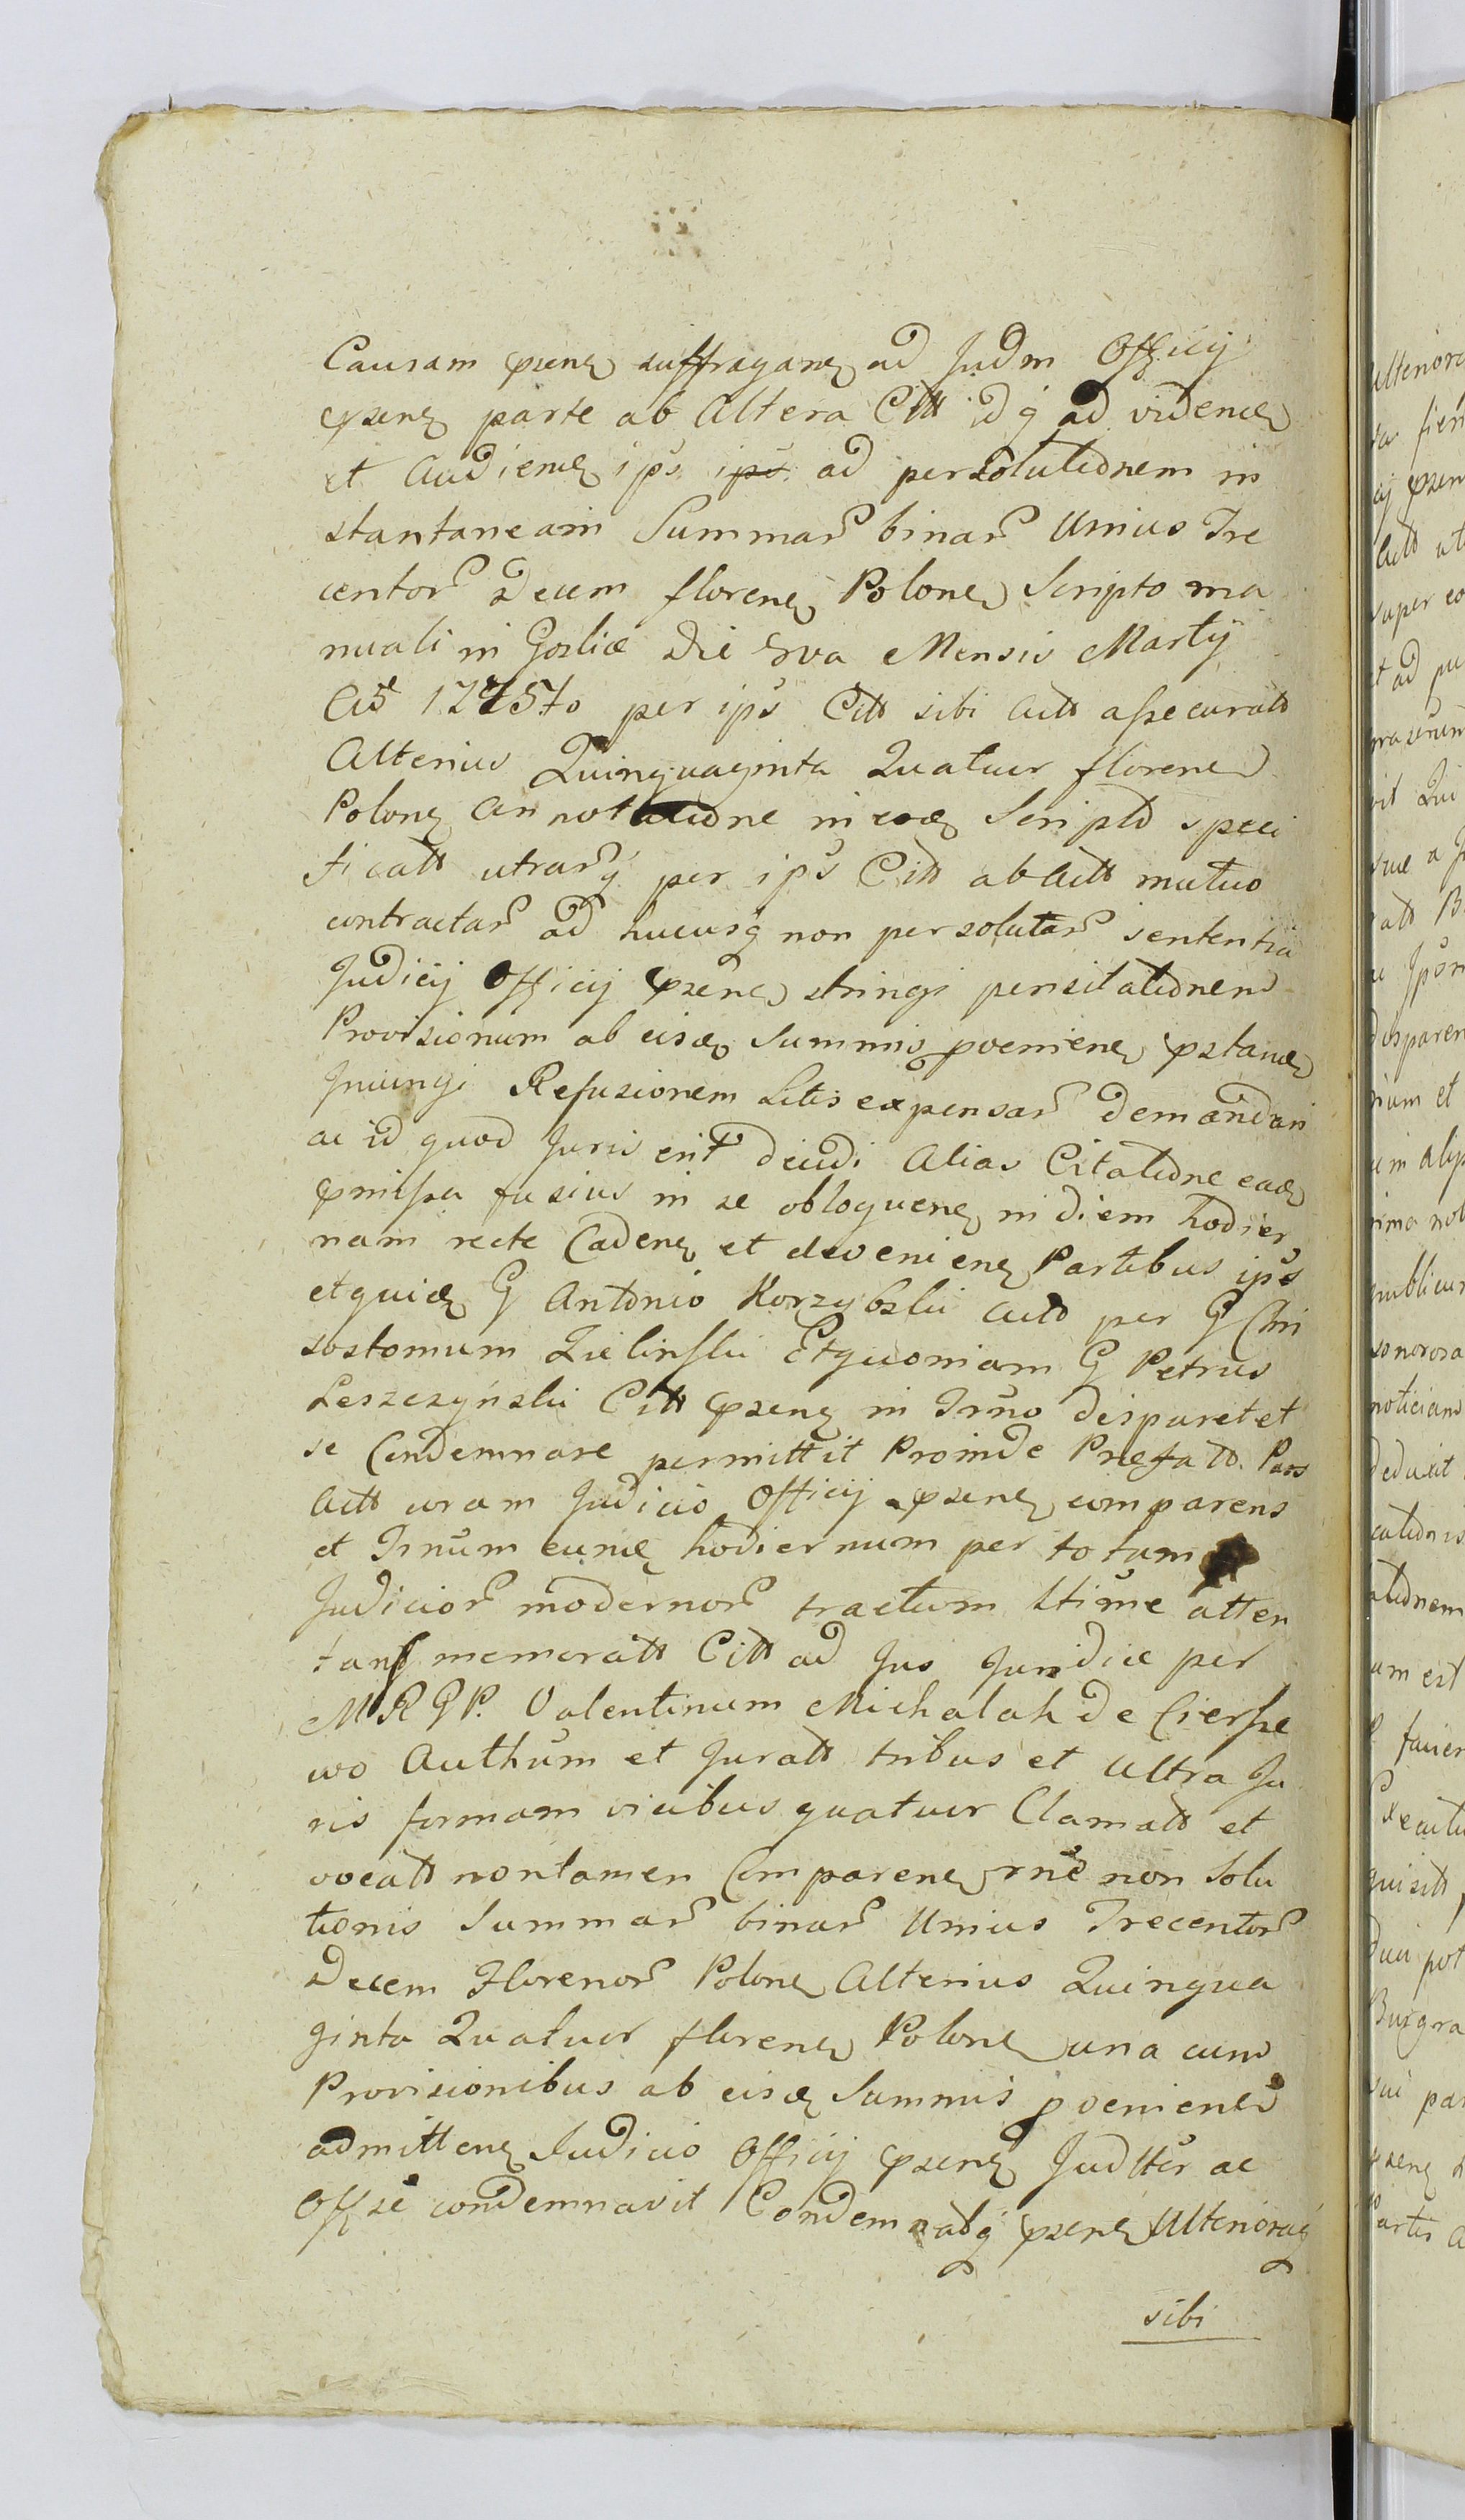 Causam prene suffragane ad Judm Officij
prene parte ab altera Citt idq ad videne
et Audiene ips ips ad persolutionem in
stantaneam Summar binar Unius Tre
centor Decem florene Polone Scripto ma
nuali in Goslice Die 8va Mensis Martij
Ao 1775to per ips Citt sibi Actt assecuratt
Alterius Quinquaginta Quatuor florene
Polone Annotatione in eode Scripto speci
ficatt utrarq per ips Citt ab Actt mutuo
contractar ad hucusq non persolutar sententia
Judicij Officij prene stringi pensitationem
Provisionum ab eisde Summis proveniene pstane
Injungi Refusionem Litis expensar demandari
ac id quod Juris erit decidi Alias Citatione eade
pmissa fusius in se obloquene in diem hodier
nam recte Cadene et eveniene Partibus ips
etquide G Antonio Korzybski Actt per G Chri
sostomum Zielinski Etquoniam G Petrus
Leszczyński Citt prene in Trno disparet et
se Condemnare permittit Proinde Prefatt Pars
Actt coram Judicio Officij prene comparens
et Trnum eunde hodiernum per totum
Judicior modernor tractum ltime atten
tans memoratt Citt ad Jus Juridice per
M R G P. Valentinum Michalak de Cierpe
wo Authum et Juratt tribus et ultra Ju
ris formam vicibus quatuor Clamatt et
vocatt non tamen Comparene rne non Solu
tionis Summar binar Unius Trecentor
Decem Florenor Polone Alterius Quinqua
ginta Quatuor florene Polone una cum
Provisionibus ab eisde Summis proveniene
admittene Judicio Officij prene Judlter ac
Offse condemnavit Condemnatq prene Ulteriorag
sibi